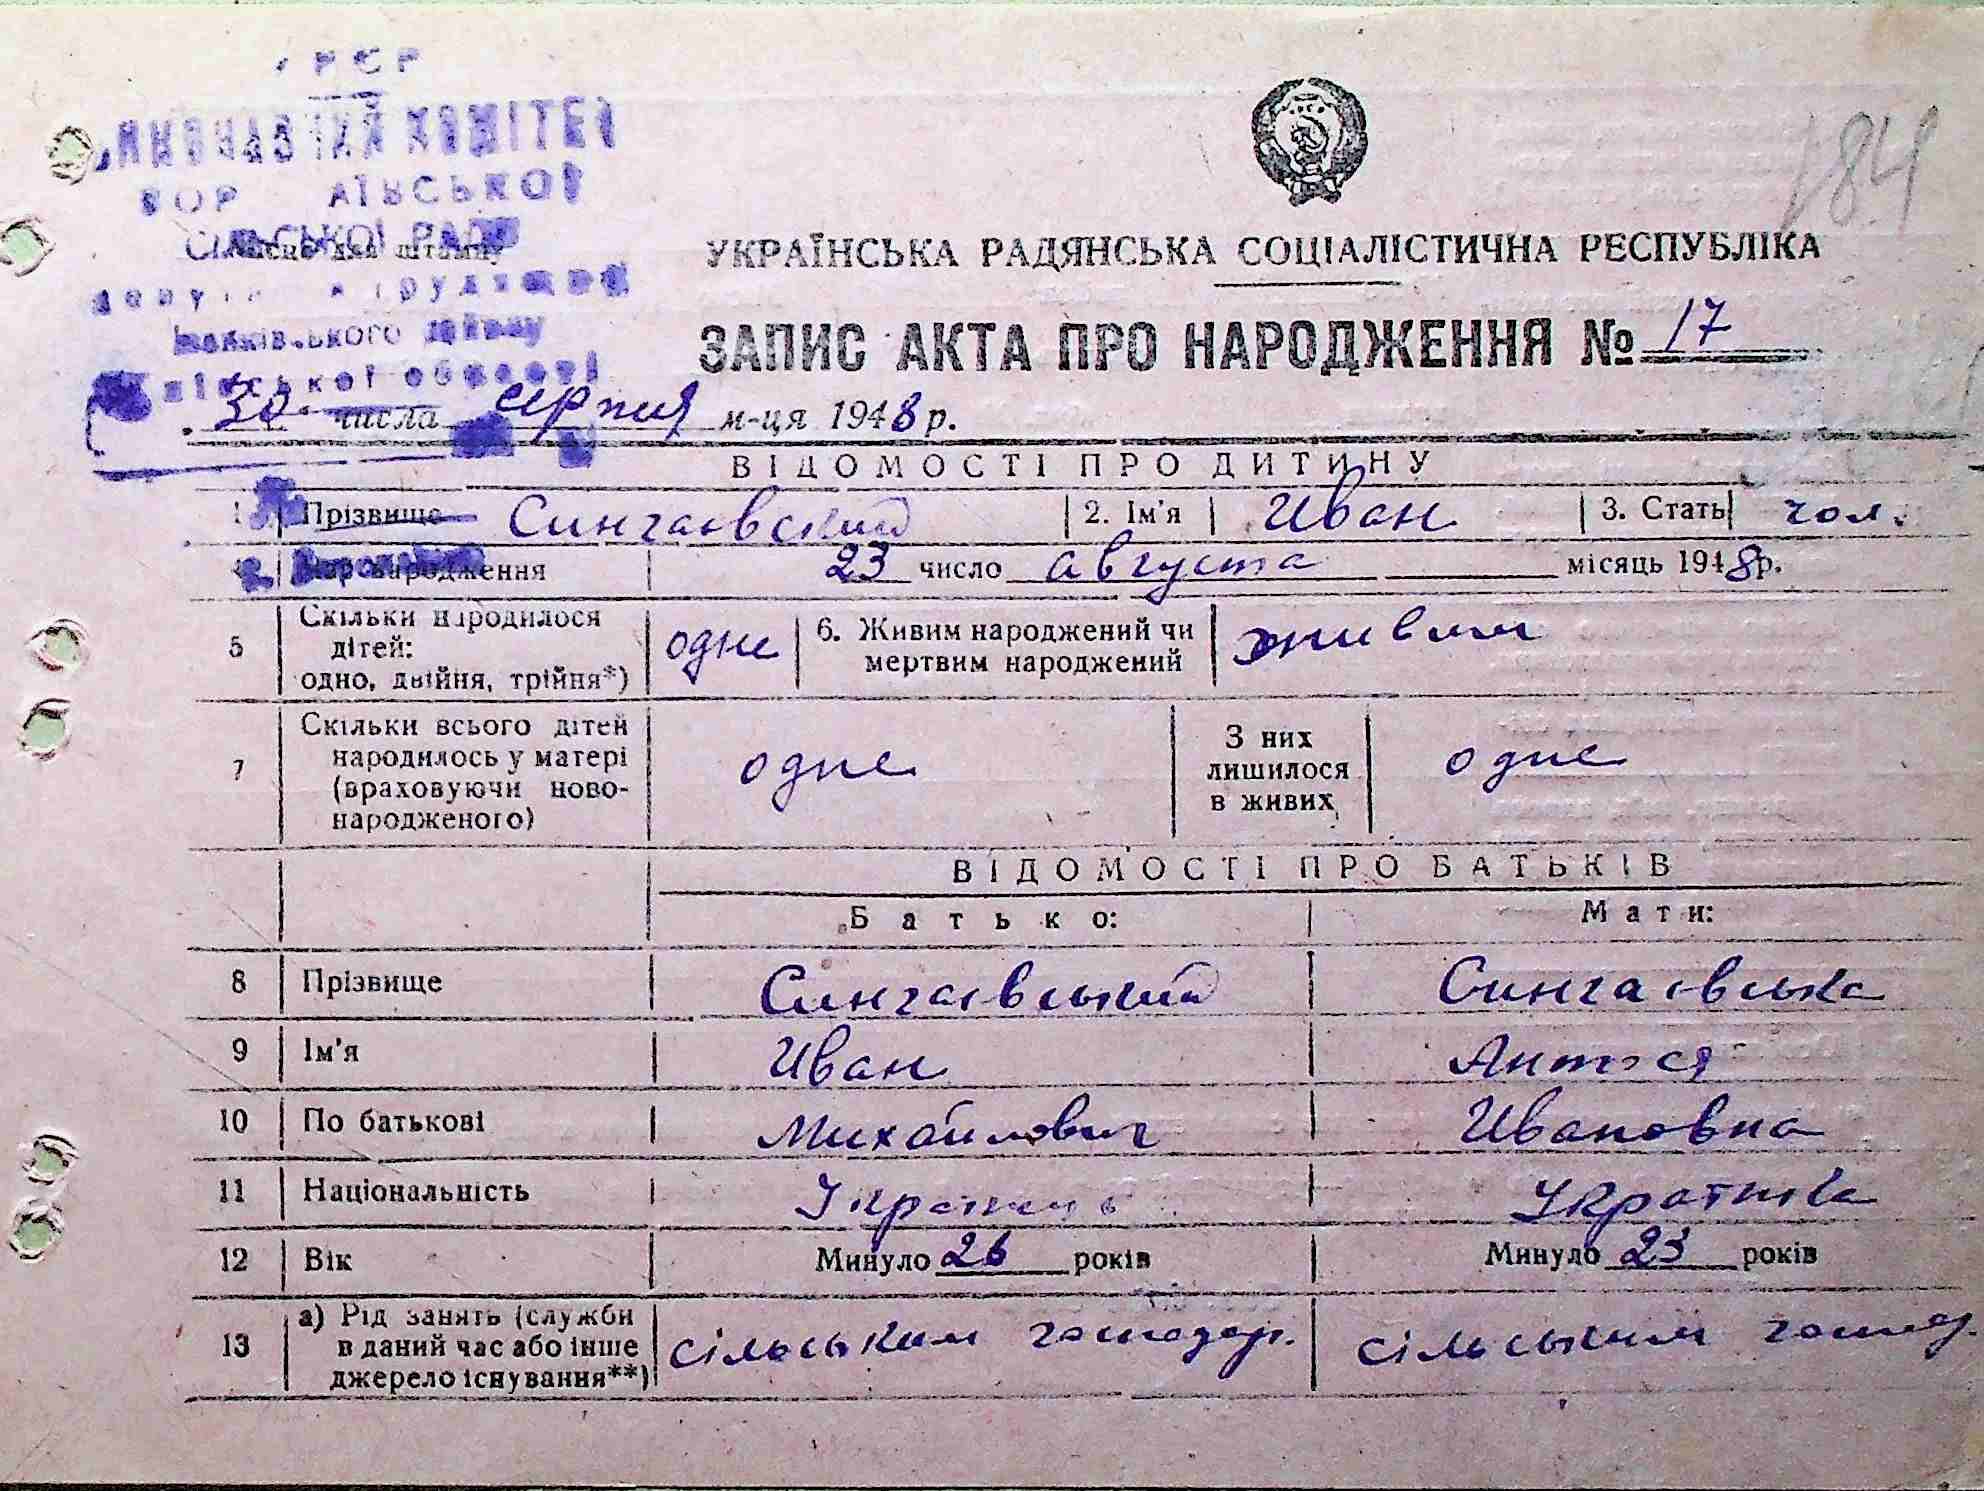 РСР
ВИКОНАВЧИЙ КОМІТЕТ
СІЛЬСЬКОЇ РАДИ
Місце для штампу
району
області
184
УКРАЇНСЬКА РАДЯНСЬКА СОЦІАЛІСТИЧНА РЕСПУБЛІКА
ЗАПИС АКТА ПРО НАРОДЖЕННЯ № 17
30 числа серпня м-ця 1948 р.
ВІДОМОСТІ ПРО ДИТИНУ
1 Прізвище Сингаєвский 2. Ім'я Иван 3. Стать чол.
народження 23 число августа місяць 1948 р.
5 Скільки народилося дітей: одно, двійня, трійня*) одне 6. Живим народжений чи мертвим народжений живим
7 Скільки всього дітей народилось у матері (враховуючи новонародженого) одне З них лишилося в живих одне
ВІДОМОСТІ ПРО БАТЬКІВ
Батько: Мати:
8 Прізвище Сингаєвський Сингаєвська
9 Ім'я Иван Антося
10 По батькові Михайлович Ивановна
11 Національність Українець Українка
12 Вік Минуло 26 років Минуло 23 років
13 а) Рід занять (служби в даний час або інше джерело існування**) сільським господар. сільським господ.